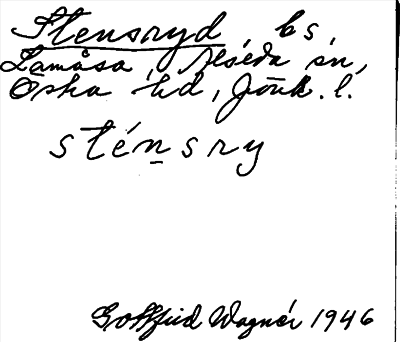 Stensryd, bs,
Lamåsa, Alseda sn,
Östra hd, Jönk. l.
sténsry
Gottfrid Wagnér 1946